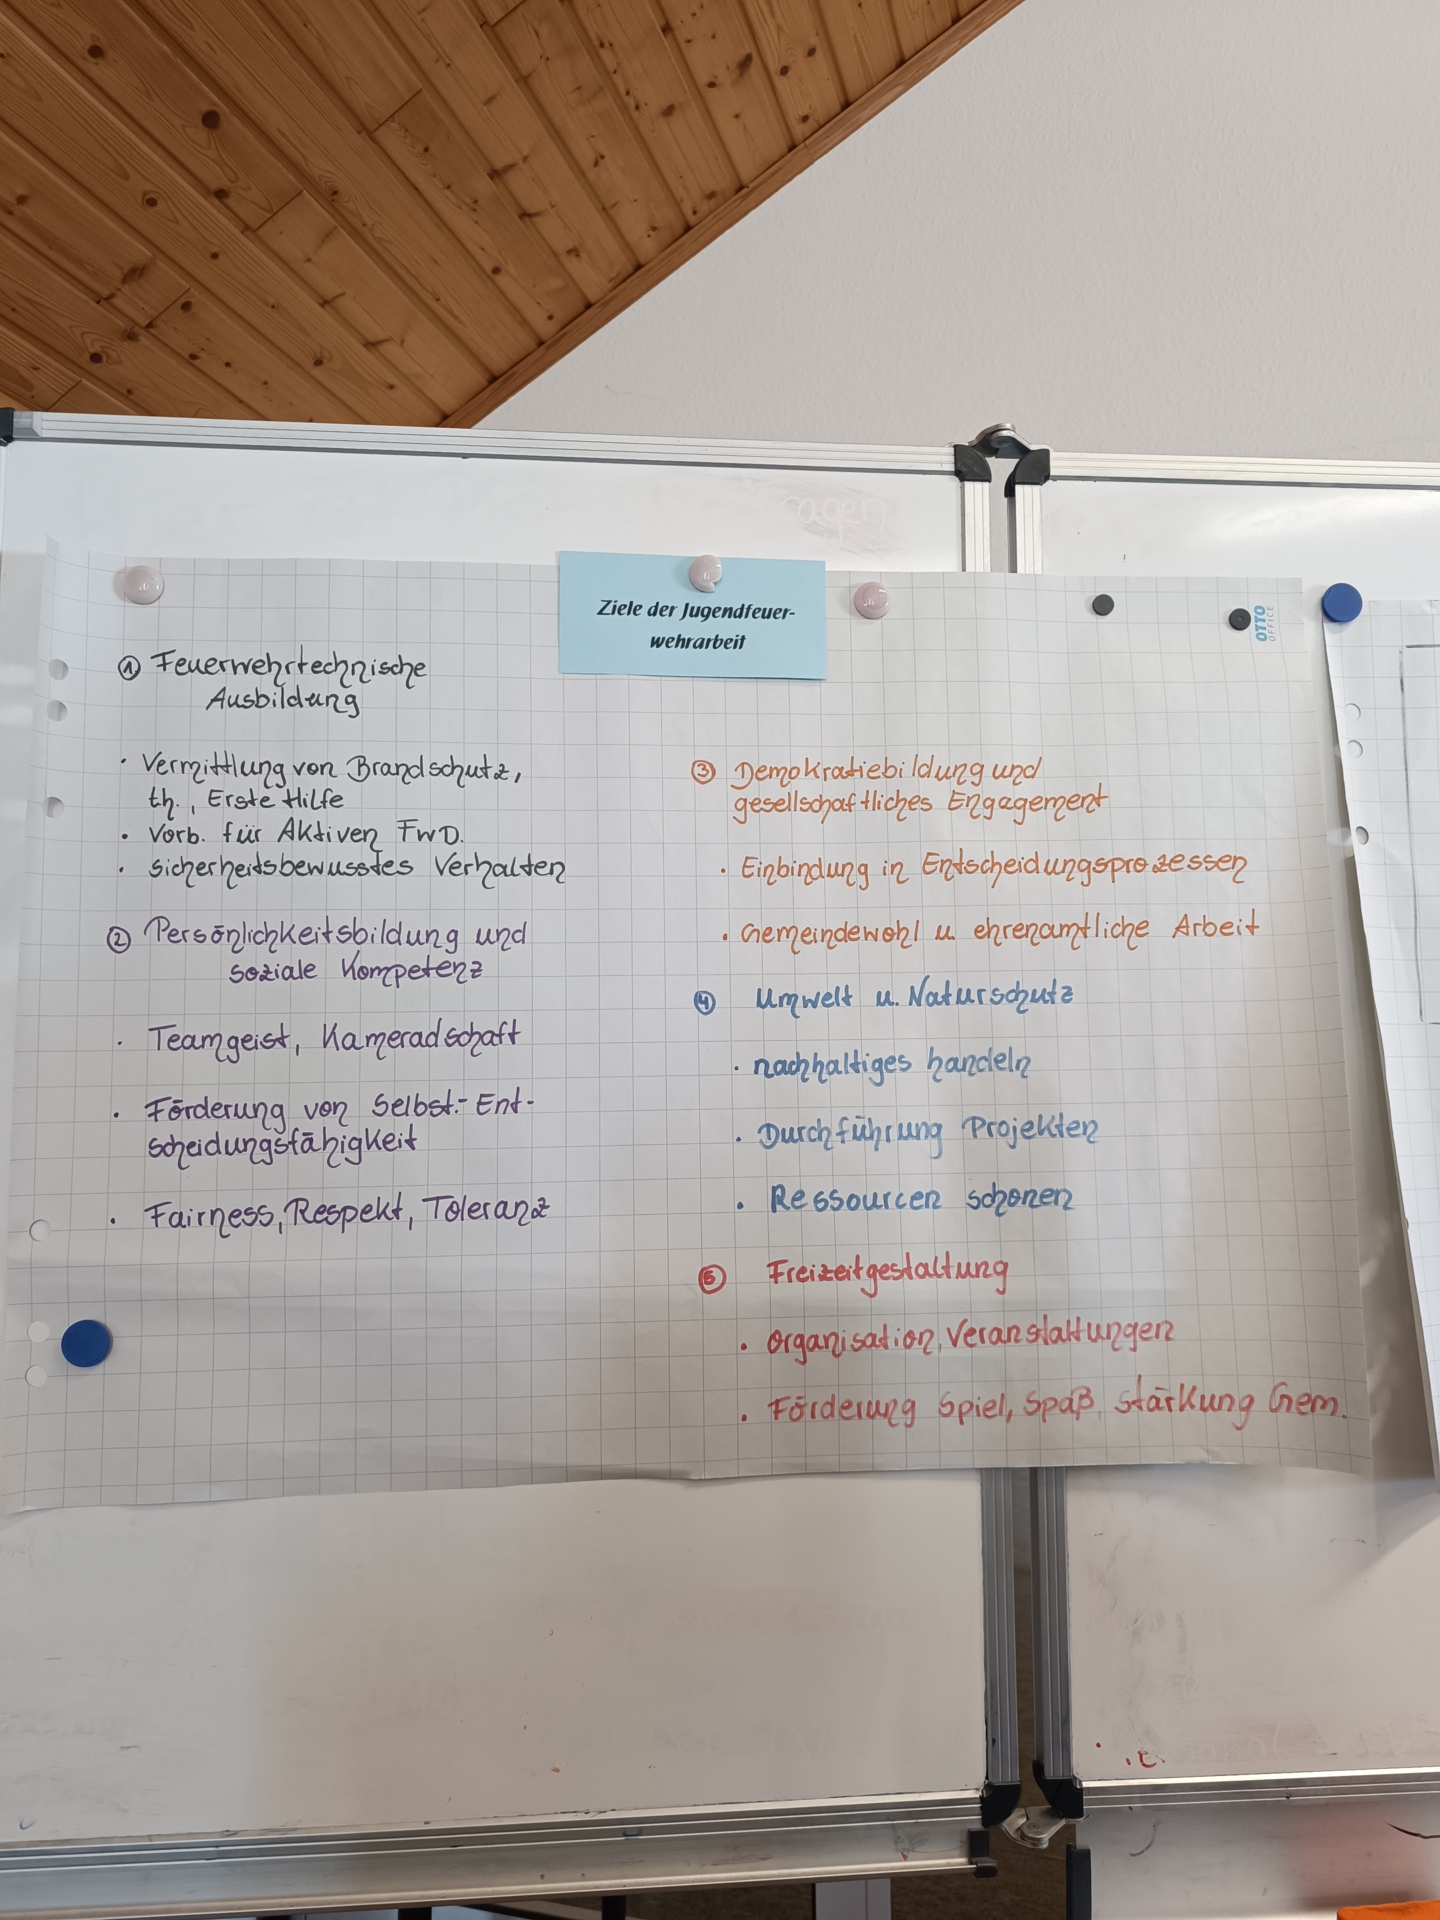 Ziele der Jugendfeuer-
wehrarbeit
OTTO
OFFICE
① Feuerwehrtechnische
Ausbildung
· Vermittlung von Brandschutz,
th., Erste Hilfe
· Vorb. für Aktiven FwD.
· sicherheitsbewusstes Verhalten
② Persönlichkeitsbildung und
soziale Kompetenz
· Teamgeist, Kameradschaft
· Förderung von Selbst.- Ent-
scheidungsfähigkeit
· Fairness, Respekt, Toleranz
③ Demokratiebildung und
gesellschaftliches Engagement
· Einbindung in Entscheidungsprozessen
· Gemeindewohl u. ehrenamtliche Arbeit
④ Umwelt u. Naturschutz
· nachhaltiges handeln
· Durchführung Projekten
· Ressourcen schonen
⑤ Freizeitgestaltung
· Organisation, Veranstaltungen
· Förderung Spiel, Spaß, Stärkung Gem.